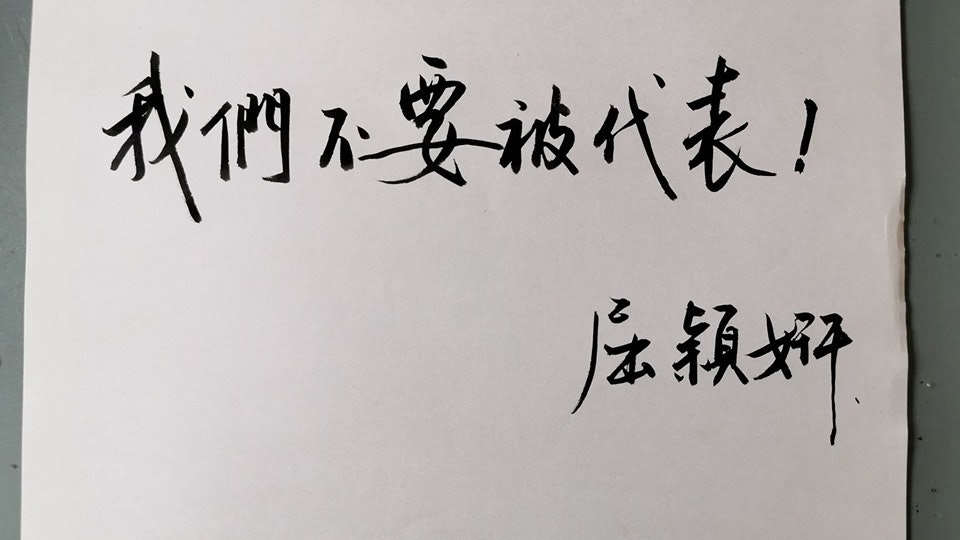 我們不要被代表！
屈穎妍